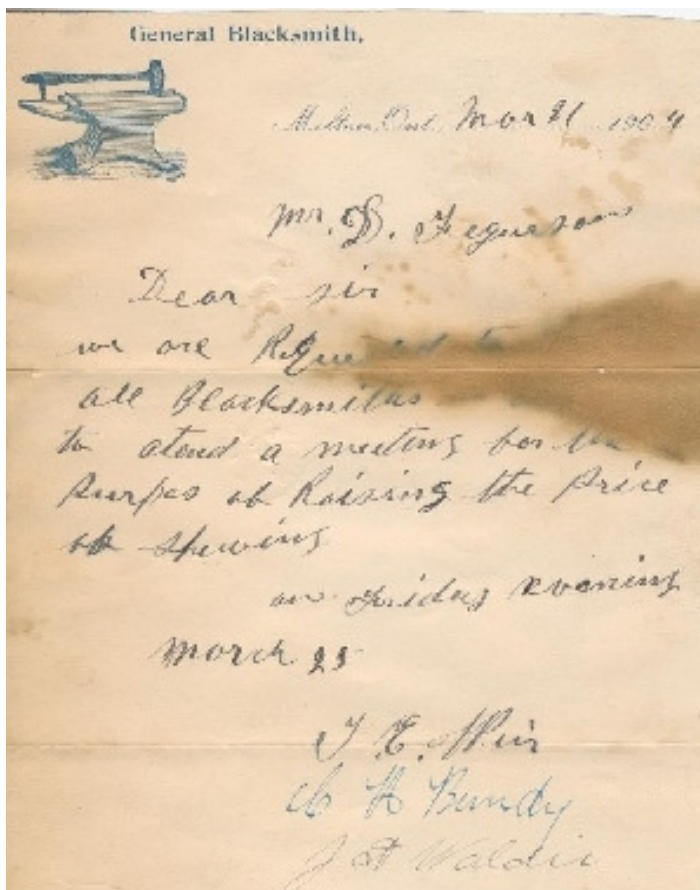 General Blacksmith,
Milton, Ont. Mar 21 1904
Mr. D. Fegueson
Dear sir
we are to
all Blacksmiths
to atend a meeting for the
purpes of Raising the price
of shewing
on Friday evening
March 25
T. E.
C H Bundy
J Waldie